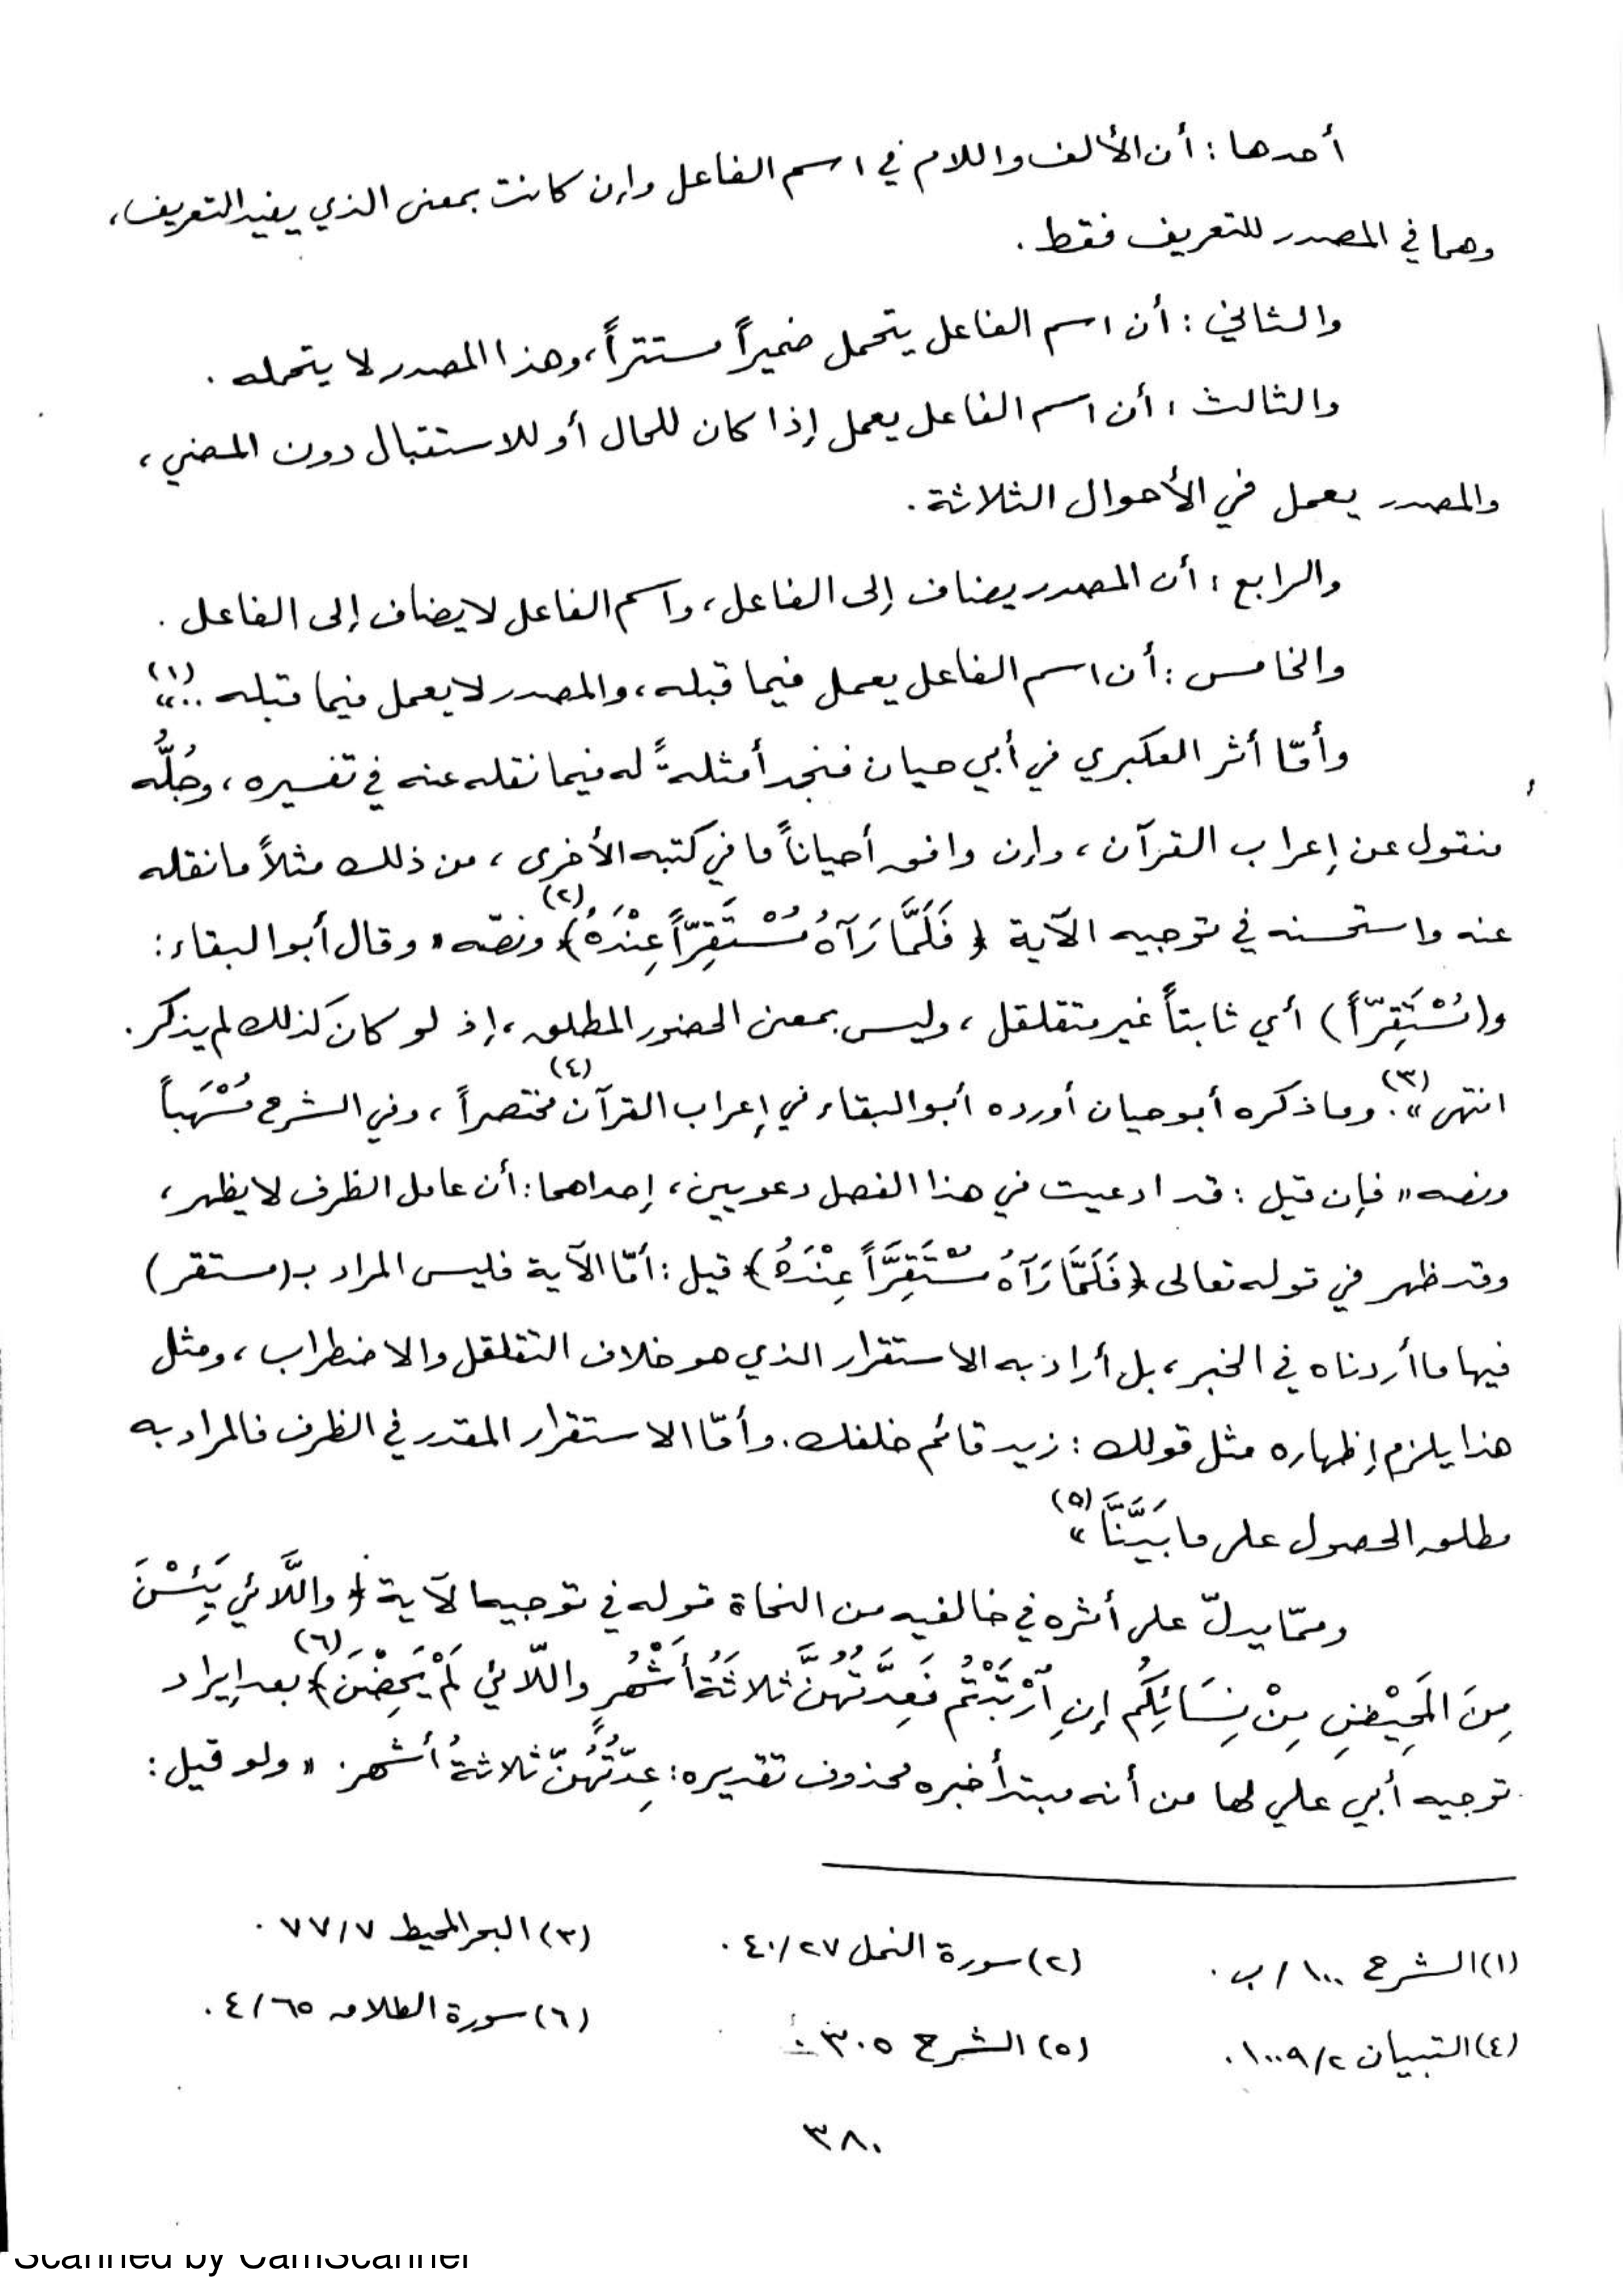 أحدها : أن الألف واللام في اسم الفاعل وإن كانت بمعنى الذي يفيد التعريف ،
وهما في المصدر للتعريف فقط .
والثاني : أن اسم الفاعل يتحمل ضميراً مستتراً ، وهذا المصدر لا يتحمله .
والثالث : أن اسم الفاعل يعمل إذا كان للحال أو للاستقبال دون المضي ،
والمصدر يعمل في الأحوال الثلاثة .
والرابع : أن المصدر يضاف إلى الفاعل ، واسم الفاعل لا يضاف إلى الفاعل .
والخامس : أن اسم الفاعل يعمل فيما قبله ، والمصدر لا يعمل فيما قبله .. » (١)
وأمّا أثر العكبري في أبي حيان فنجد أمثلةً له فيما نقله عنه في تفسيره ، وجُلُّه
منقول عن إعراب القرآن ، وإن وافق أحياناً ما في كتبه الأخرى ، من ذلك مثلاً ما نقله
عنه واستحسنه في توجيه الآية ﴿ فَلَمَّا رَآهُ مُسْتَقِرّاً عِنْدَهُ ﴾ (٢) ونصّه « وقال أبو البقاء :
و(مُسْتَقِرّاً) أي ثابتاً غير متقلقل ، وليس بمعنى الحضور المطلق ، إذ لو كان كذلك لم يذكر .
انتهى » (٣) . وما ذكره أبو حيان أورده أبو البقاء في إعراب القرآن (٤) مختصراً ، وفي الشرح مُسْهَباً
ونصه « فإن قيل : قد ادعيت في هذا الفصل دعويين ، إحداهما : أن عامل الظرف لا يظهر ،
وقد ظهر في قوله تعالى ﴿ فَلَمَّا رَآهُ مُسْتَقِرَّاً عِنْدَهُ ﴾ قيل : أمّا الآية فليس المراد بـ (مستقر)
فيها ما أردناه في الخبر ، بل أراد به الاستقرار الذي هو خلاف التقلقل والاضطراب ، ومثل
هذا يلزم إظهاره مثل قولك : زيد قائم خلفك . وأمّا الاستقرار المقدر في الظرف فالمراد به
مطلق الحصول على ما بَيَّنَّا » (٥)
وممّا يدلّ على أثره في خالفيه من النحاة قوله في توجيه الآية ﴿ واللَّائي يَئِسْنَ
مِنَ المَحِيْضِ مِنْ نِسَائِكُم إنِ ارْتَبْتُم فَعِدَّتُهُنَّ ثلاثَةُ أَشْهُرٍ واللّائي لَمْ يَحِضْنَ ﴾ (٦) بعد إيراد
توجيه أبي علي لها من أنه مبتدأ خبره محذوف تقديره : عِدّتُهُنّ ثلاثةُ أشهرٍ . « ولو قيل :
(١) الشرح ١٠٠ / ب . (٢) سورة النمل ٤٠/٢٧ . (٣) البحر المحيط ٧٧/٧ .
(٤) التبيان ١٠٠٩/٢ . (٥) الشرح ٣٠٥ . (٦) سورة الطلاق ٤/٦٥ .
٣٨٠
Scanned by CamScanner